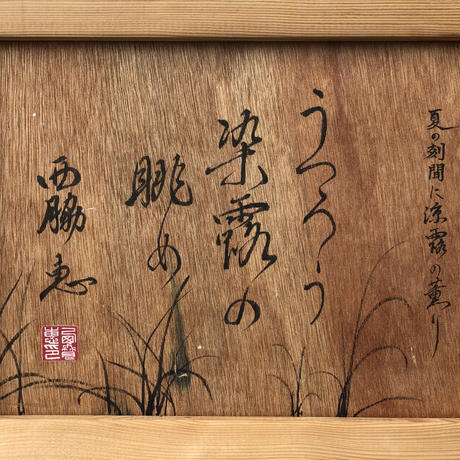 夏の刻間に涼露の薫り
うつろう
染露の
眺め
西脇恵